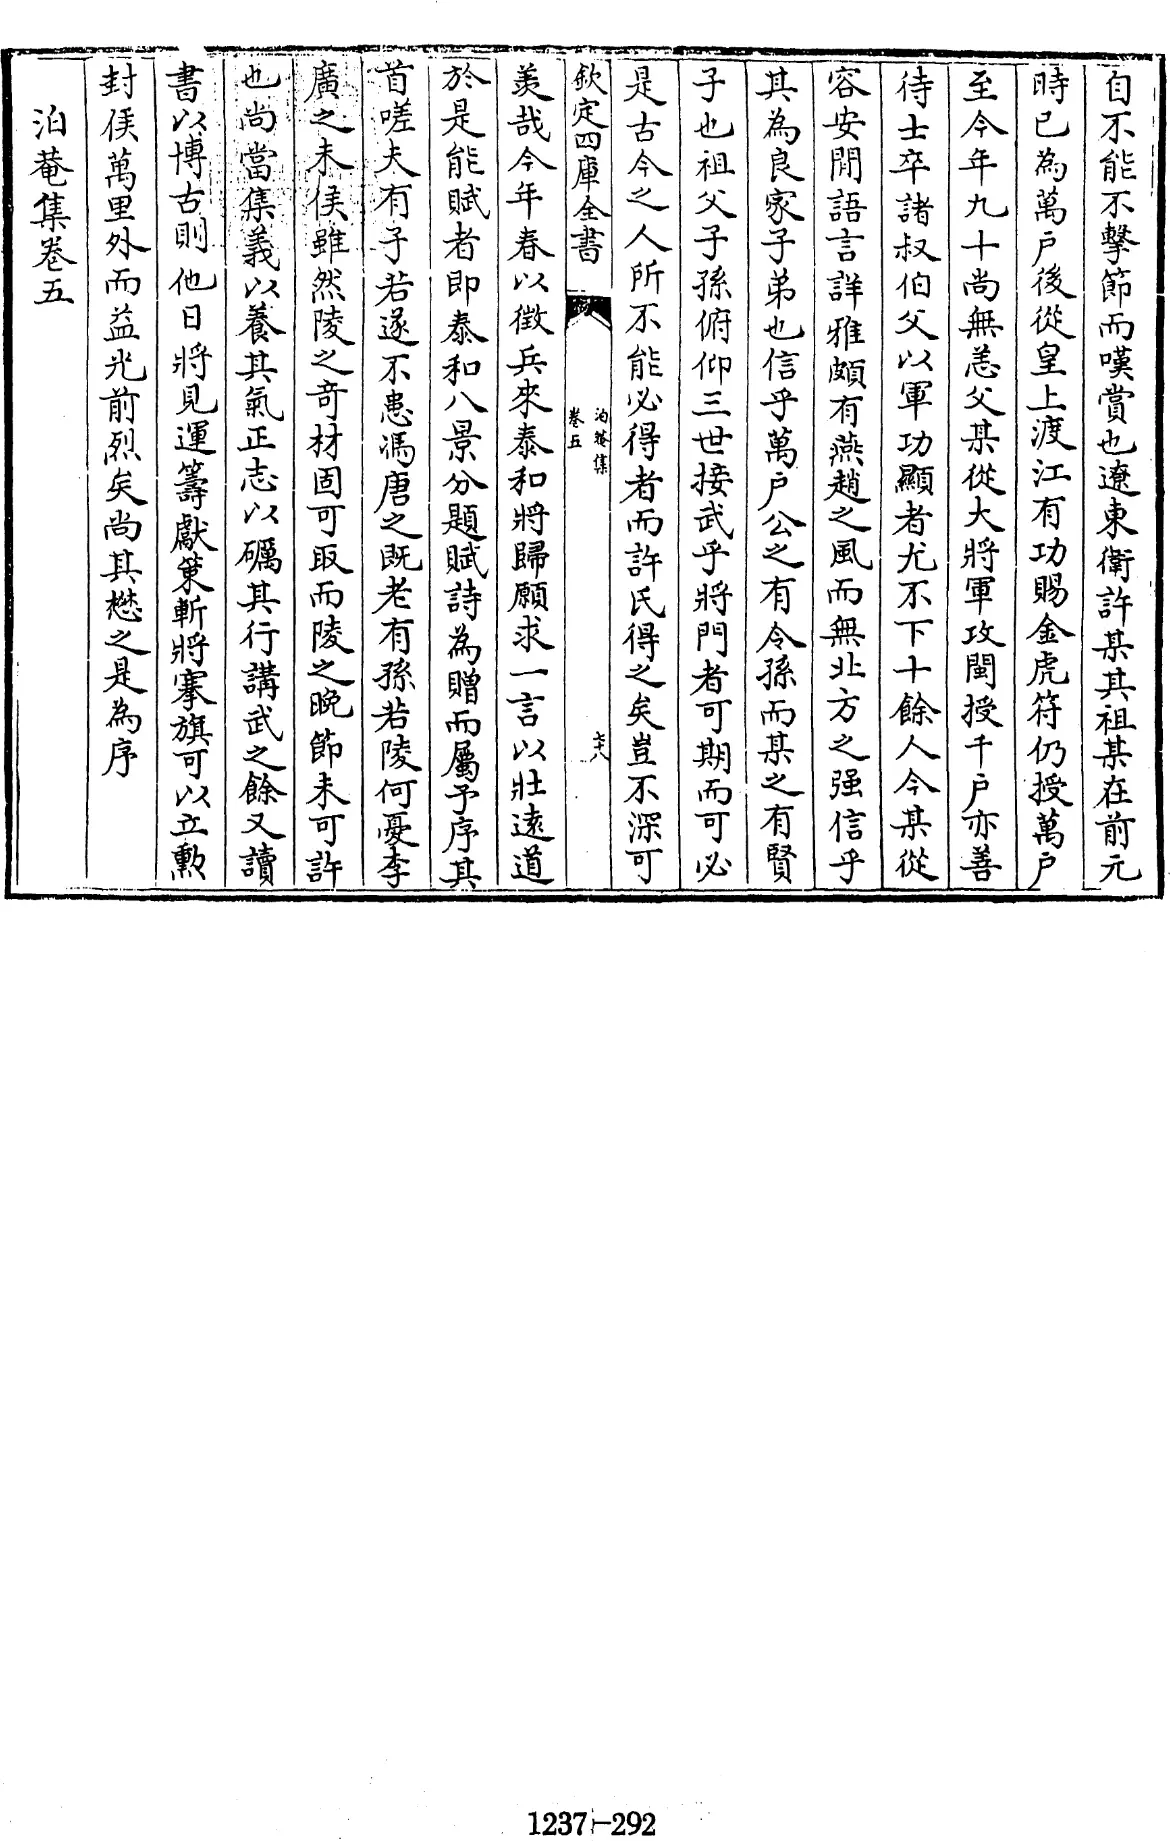 自不能不擊節而嘆賞也遼東衛許某其祖某在前元
時已為萬戶後從皇上渡江有功賜金虎符仍授萬戶
至今年九十尚無恙父某從大將軍攻閩授千戶亦善
待士卒諸叔伯父以軍功顯者尤不下十餘人今某從
容安閒語言詳雅頗有燕趙之風而無北方之强信乎
其為良家子弟也信乎萬戶公之有令孫而某之有賢
子也祖父子孫俯仰三世接武乎將門者可期而可必
是古今之人所不能必得者而許氏得之矣豈不深可
欽定四庫全書
泊菴集
卷五
羡哉今年春以徵兵來泰和將歸願求一言以壯遠道
於是能賦者即泰和八景分題賦詩為贈而屬予序其
首嗟夫有子若遂不患馮唐之既老有孫若陵何憂李
廣之未侯雖然陵之奇材固可取而陵之晚節未可許
也尚當集義以養其氣正志以礪其行講武之餘又讀
書以博古則他日將見運籌獻策斬將搴旗可以立勲
封侯萬里外而益光前烈矣尚其懋之是為序
泊菴集卷五
1237-292